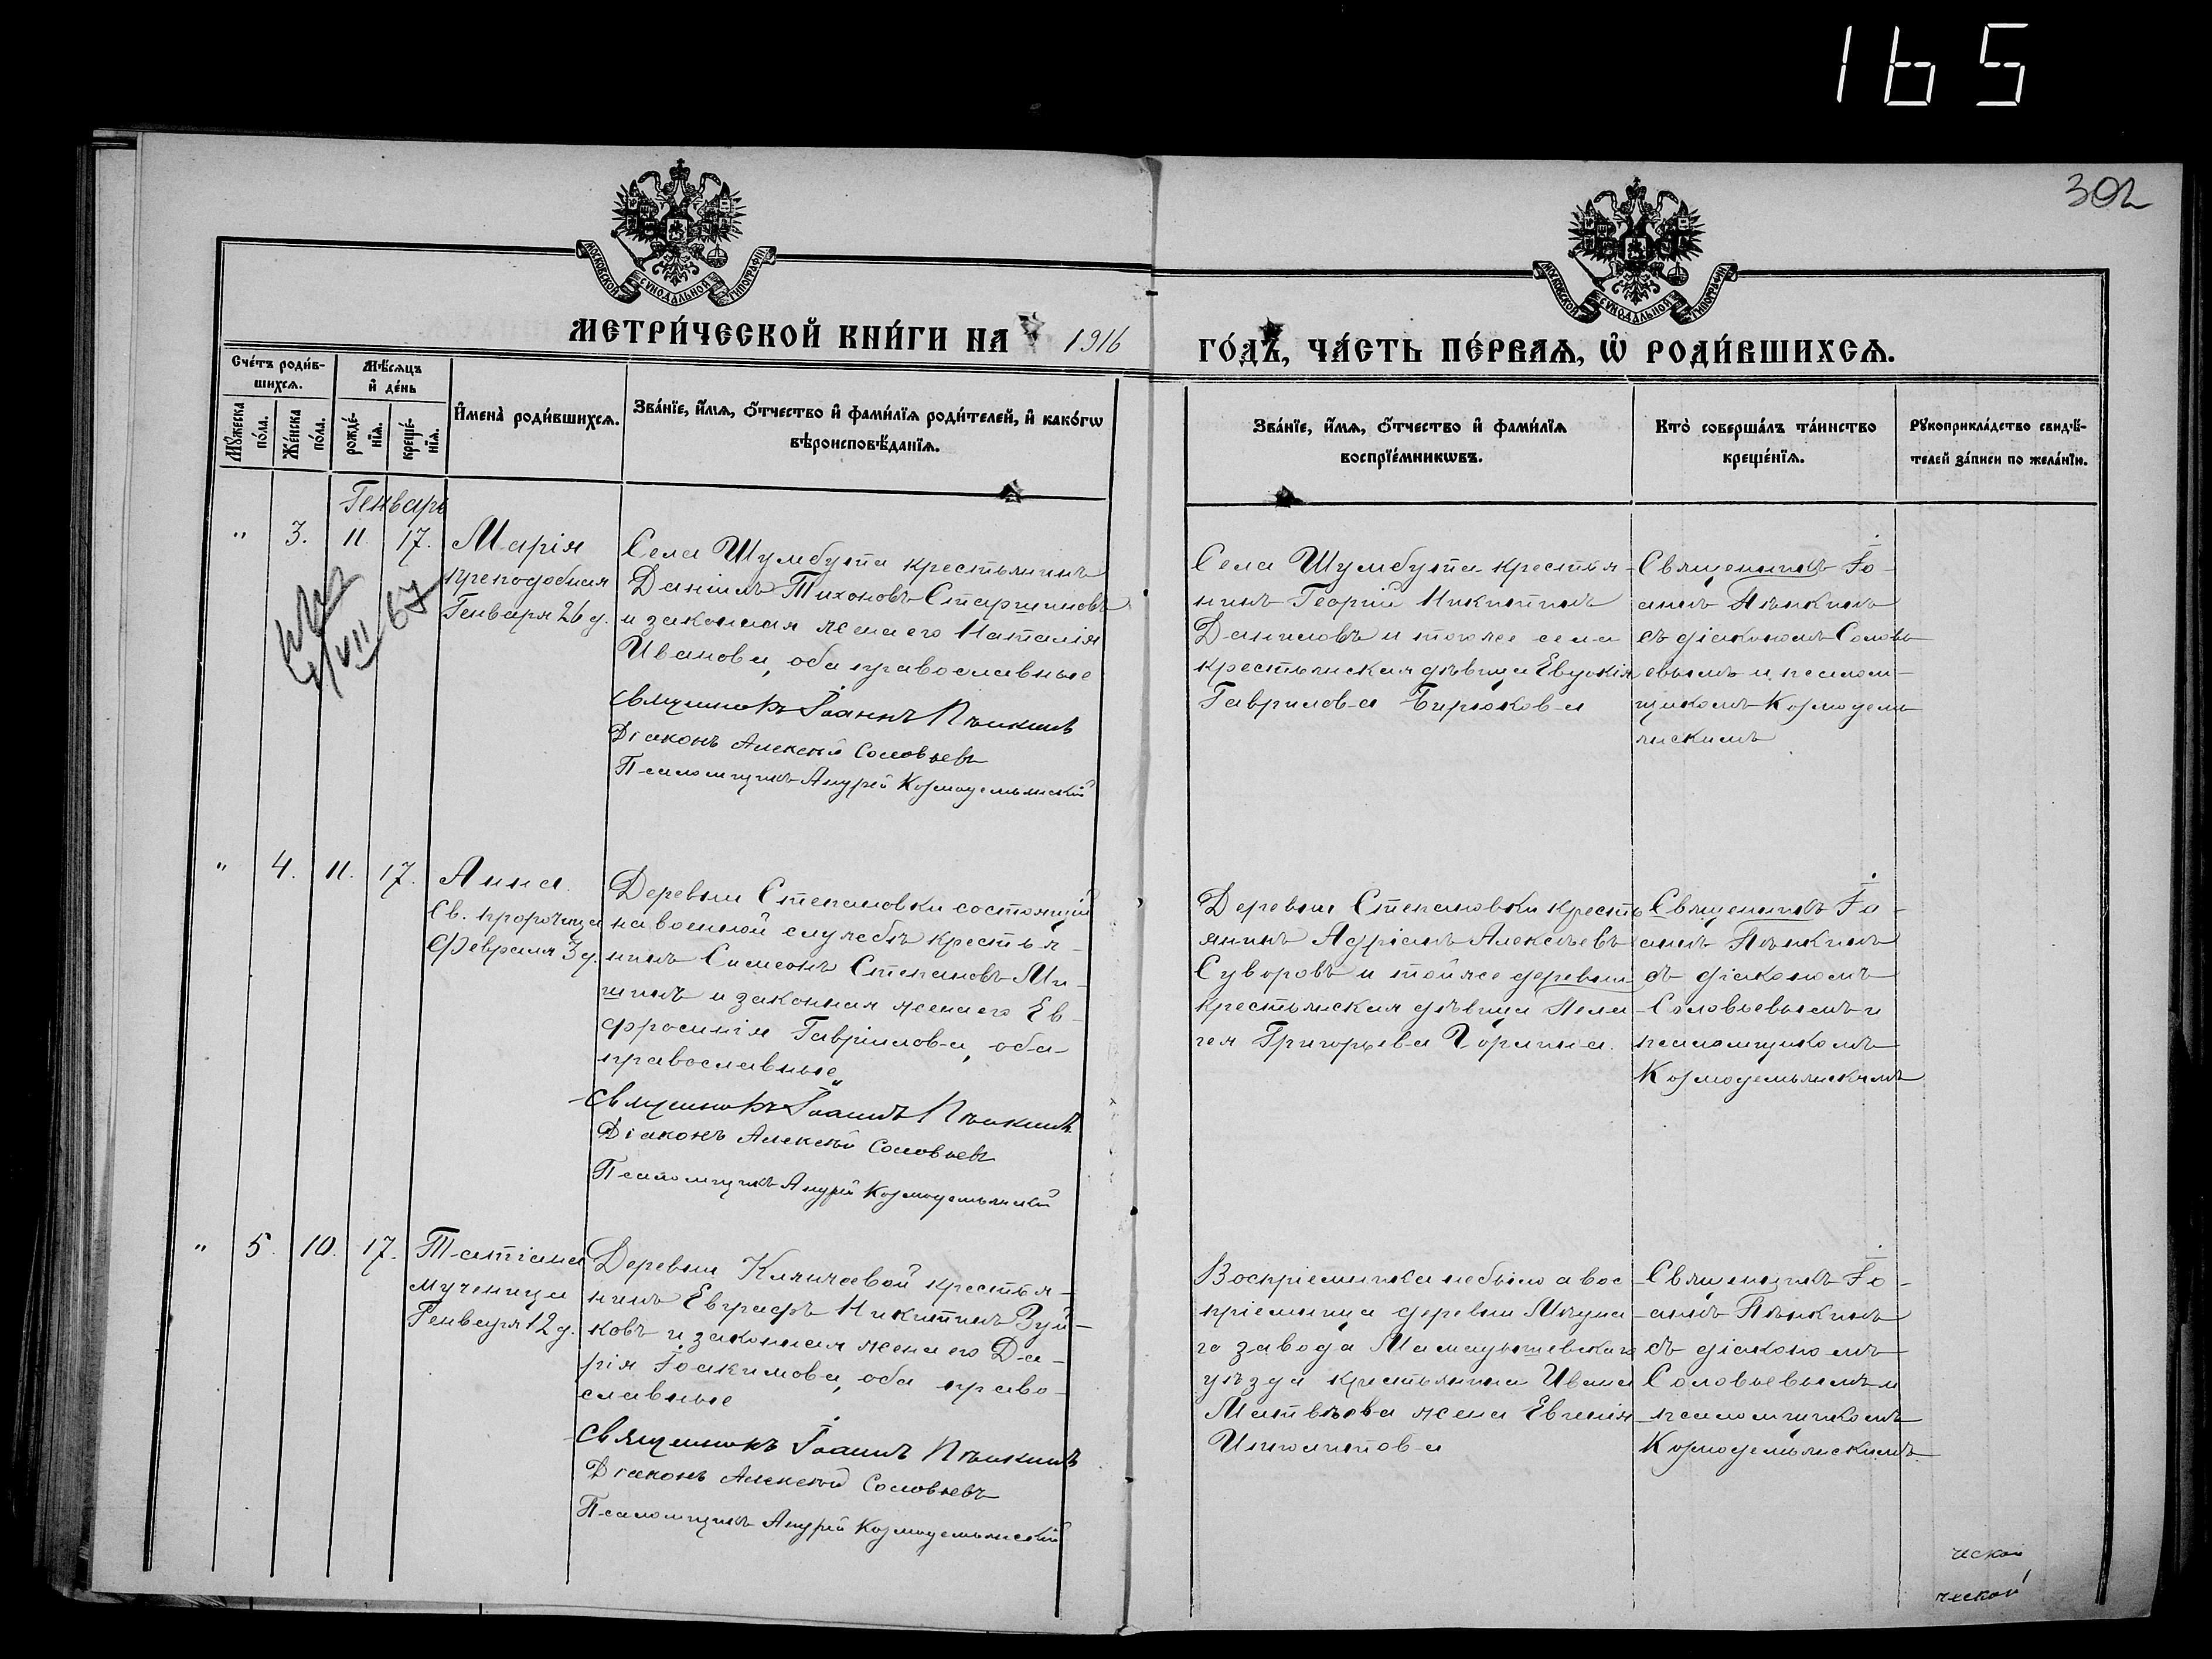 165
302
МОСКОВСКОЙ СѴНОДАЛЬНОЙ ТИПОГРАФІИ.
МОСКОВСКОЙ СѴНОДАЛЬНОЙ ТИПОГРАФІИ.
МЕТРИ́ЧЕСКОЙ КНИ́ГИ НА 1916
ГО́ДЪ, ЧА́СТЬ ПЕ́РВАѦ, Ѡ РОДИ́ВШИХСѦ.
Сче́тъ роди́в-
шихсѧ.
Мꙋжеска
по́ла.
Же́нска
по́ла.
Мѣ́сѧцъ
и҆ де́нь
рожде́-
нїѧ.
креще́-
нїѧ.
И҆мена̀ роди́вшихсѧ.
Зва́нїе, и҆́мѧ, ѻ҆́тчество и҆ фами́лїѧ роди́телей, и҆ како́гѡ
вѣроисповѣ́данїѧ.
Зва́нїе, и҆́мѧ, ѻ҆́тчество и҆ фами́лїѧ
воспрїе́мникѡвъ.
Кто̀ соверша́лъ та́инство
креще́нїѧ.
Рꙋкоприкла́дство свидѣ́-
телей за́писи по жела́нїю.
Генварь
" 3. 11. 17. Марія
преподобная
Генваря 26 д.
VII 67
Села Шумбута крестьянинъ
Даніилъ Тихоновъ Старшиновъ
и законная жена его Наталія
Иванова, оба православные
Священникъ Іоаннъ Пѣнкинъ
Діаконъ Алексѣй Соловьевъ
Псаломщикъ Андрей Козмодемьянскій
Села Шумбута крестья-
нинъ Георгій Никитинъ
Даниловъ и того же села
крестьянская дѣвица Евдокія
Гаврилова Бирюкова
Священникъ Іо-
аннъ Пѣнкинъ
съ діакономъ Соловь
евымъ и псалом-
щикомъ Козмодемь
янскимъ
" 4. 11. 17. Анна.
Св. пророчица
Февраля 3 д.
Деревни Степановки состоящій
на военной службѣ крестья-
нинъ Симеонъ Степановъ Ми-
шинъ и законная жена его Ев-
фросинія Гавріилова, оба
православные
Священникъ Іоаннъ Пѣнкинъ
Діаконъ Алексѣй Соловьевъ
Псаломщикъ Андрей Козмодемьянскій
Деревни Степановки кресть
янинъ Адріанъ Алексѣевъ
Суворовъ и той же деревни
крестьянская дѣвица Пела-
гея Григорьева Горшина.
Священникъ Іо-
аннъ Пѣнкинъ
съ діакономъ
Соловьевымъ и
псаломщикомъ
Козмодемьянскимъ
" 5. 10. 17. Татіана
мученица
Генваря 12 д.
Деревни Клянчеевой крестья-
нинъ Евграфъ Никитинъ Зуй-
ковъ и законная жена его Да-
рія Іоакимова, оба право-
славные
Священникъ Іоаннъ Пѣнкинъ
Діаконъ Алексѣй Соловьевъ
Псаломщикъ Андрей Козмодемьянскій
Воспріемника не было а вос-
пріемница деревни
го завода Мамадышевскаго
уѣзда крестьянина Ивана
Матвѣева жена Евгенія
Ипполитова
Священникъ Іо-
аннъ Пѣнкинъ
съ діакономъ
Соловьевымъ и
псаломщикомъ
Козмодемьянскимъ
ческой
ческой